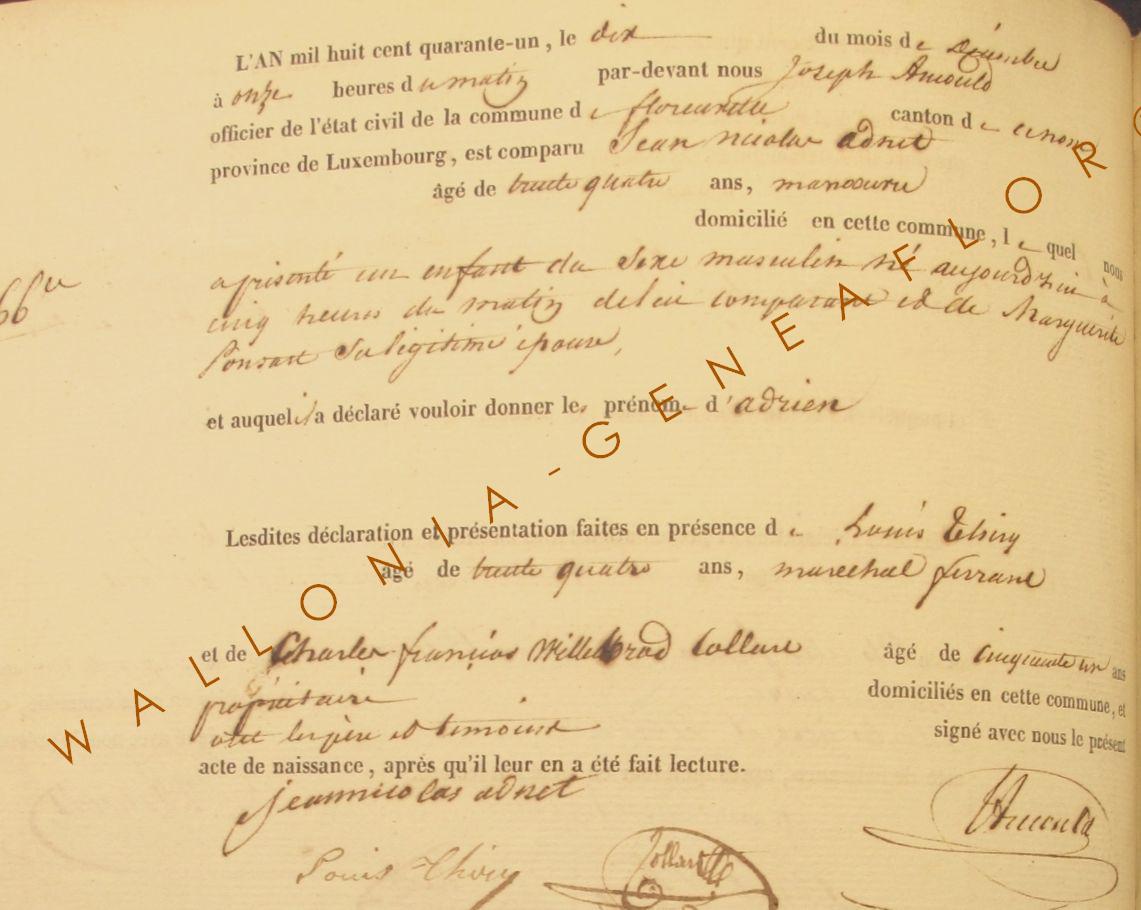 L'AN mil huit cent quarante-un, le dix du mois de Décembre
à onze heures du matin par-devant nous Joseph Arnould
officier de l'état civil de la commune de florenville canton de
province de Luxembourg, est comparu Jean nicolas adnet
âgé de trente quatre ans, manoeuvre
domicilié en cette commune, lequel nous
a présenté un enfant du Sexe masculin né aujourd'hui à
66e
cinq heures du matin de lui comparant et de Marguerite
Ponsart Sa légitime épouse,
et auquel il a déclaré vouloir donner les prénom d'adrien
Lesdites déclaration et présentation faites en présence de Louis Thiry
âgé de trente quatre ans, marechal ferrant
et de Charles françois Willebrod Collard âgé de cinquante un ans
propriétaire domiciliés en cette commune, et
ont les père et temoins signé avec nous le présent
acte de naissance, après qu'il leur en a été fait lecture.
jeannicolas adnet
JArnould
Louis Thiry
Collard
WALLONIA-GENEAFLOR